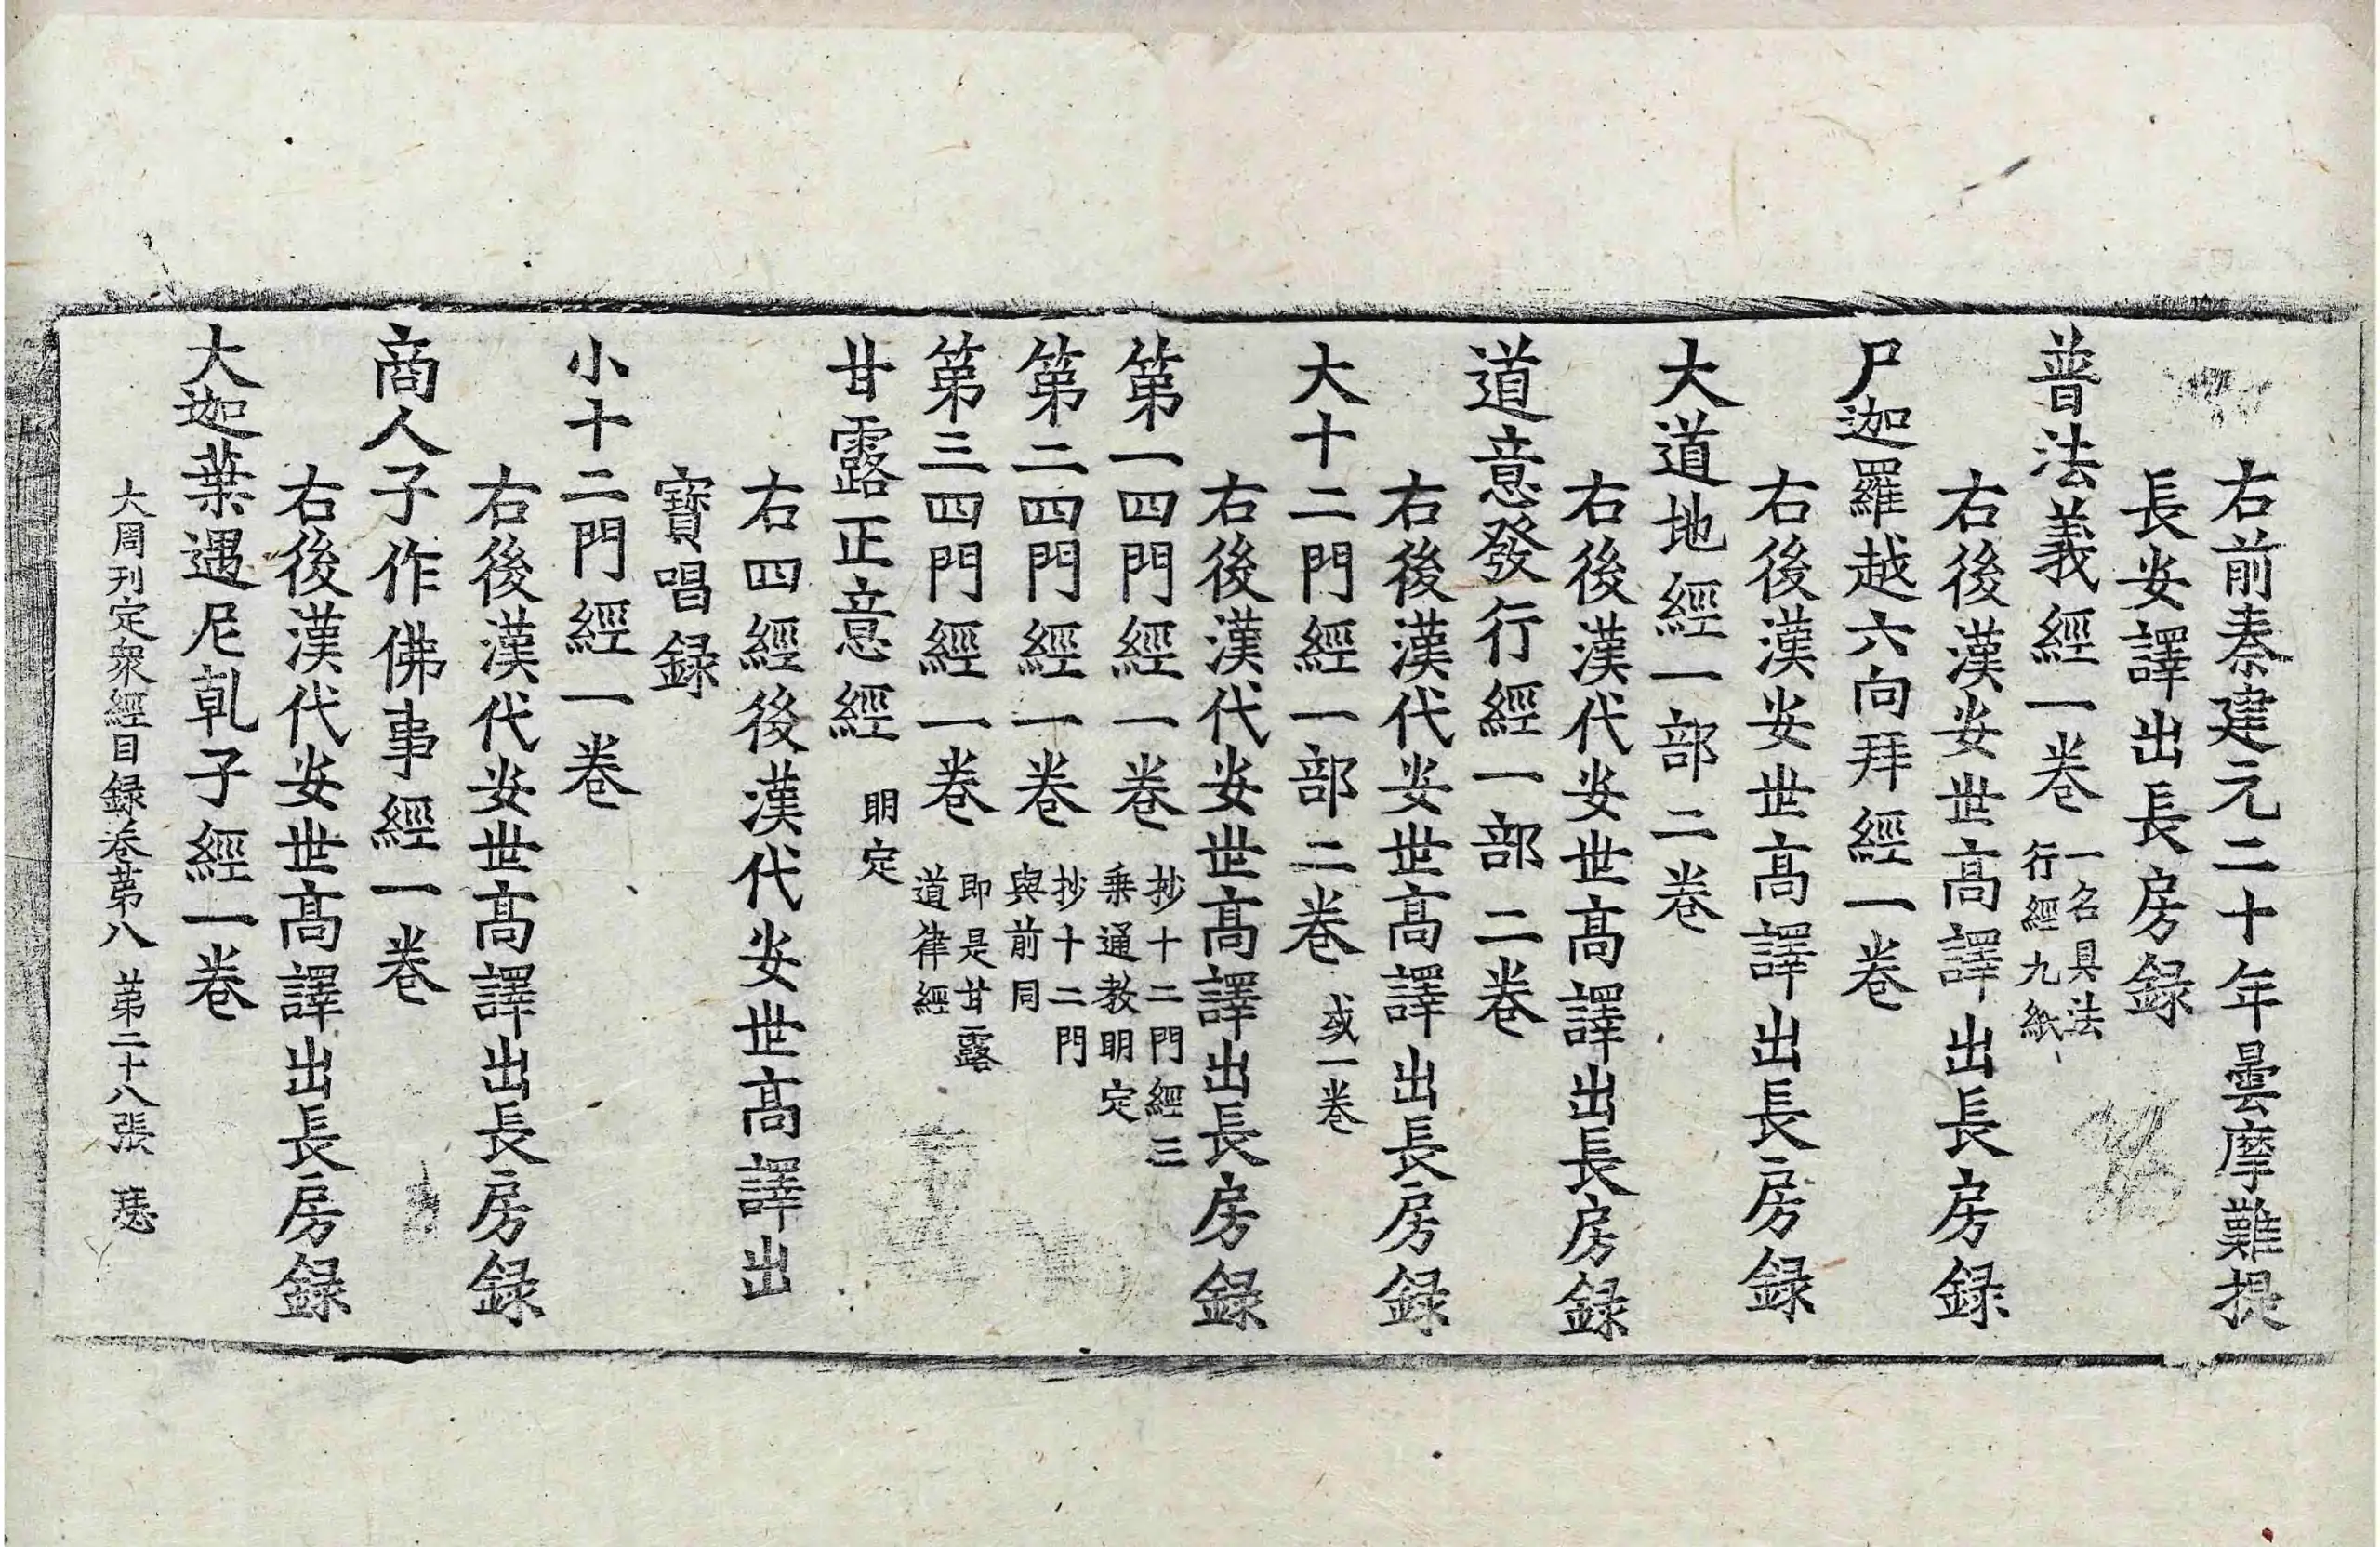 右前秦建元二十年曇摩難提
長安譯出長房録
普法義經一卷 一名具法行經九紙
右後漢安世高譯出長房録
尸迦羅越六向拜經一卷
右後漢安世高譯出長房録
大道地經一部二卷
右後漢代安世高譯出長房録
道意發行經一部二卷
右後漢代安世高譯出長房録
大十二門經一部二卷 或一卷
右後漢代安世高譯出長房録
第一四門經一卷 抄十二門經三乗通教明定
第二四門經一卷 抄十二門與前同
第三四門經一卷 即是甘露道律經
甘露正意經 明定
右四經後漢代安世高譯出
寶唱録
小十二門經一卷
右後漢代安世高譯出長房録
商人子作佛事經一卷
右後漢代安世高譯出長房録
大迦葉遇尼乹子經一卷
大周刊定衆經目録卷第八 第二十八張